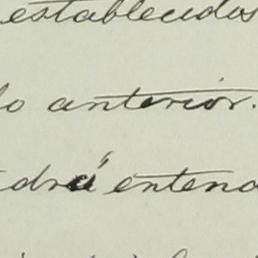 establecidos
lo anterior.
drá entend